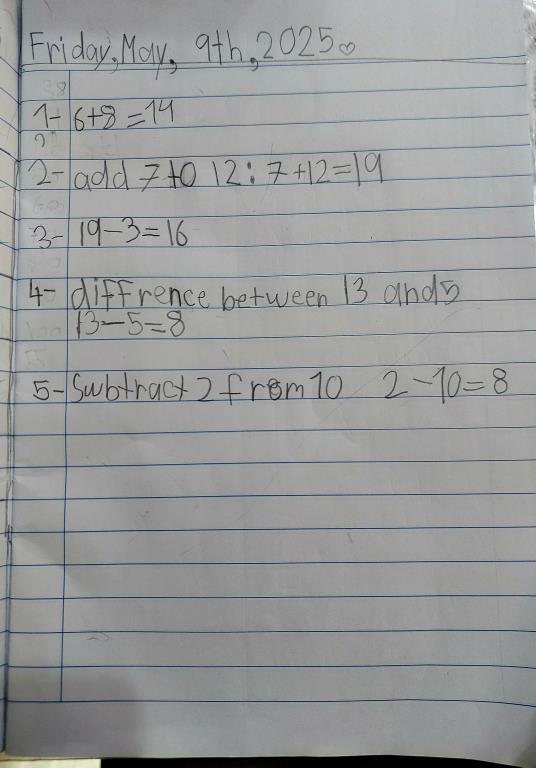 Friday, May, 9th, 2025
1- 6+8=14
2- add 7 to 12: 7+12=19
3- 19-3=16
4- diffrence between 13 and 5
13-5=8
5- Subtract 2 from 10 2-10=8